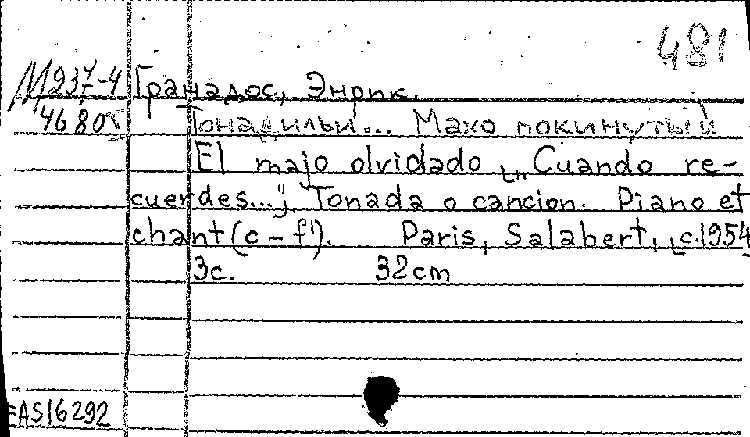 481
М237-4 Гранадос, Энрик.
4680 Тонадильи... Махо покинутый
El majo olvidado [„Cuando re-
cuerdes..."]. Tonada o cancion. Piano et
chant (c – f¹). Paris, Salabert, [c.1954]
3c. 32cm
EAS16292